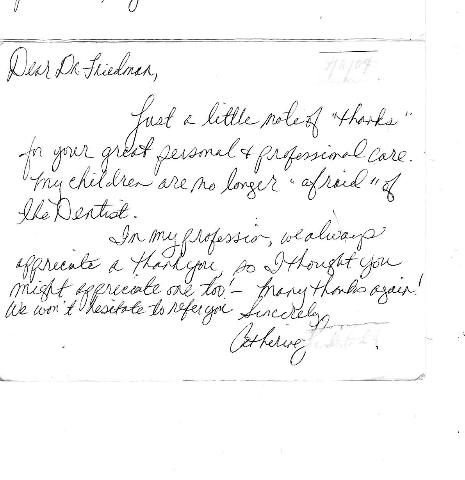 Dear Dr. Friedman,
Just a little note of "thanks"
for your great personal & professional care.
My children are no longer "afraid" of
the Dentist.
In my profession, we always
appreciate a thank you, so I thought you
might appreciate one too! - Many thanks again!
We won't hesitate to refer you
Sincerely,
Catherine